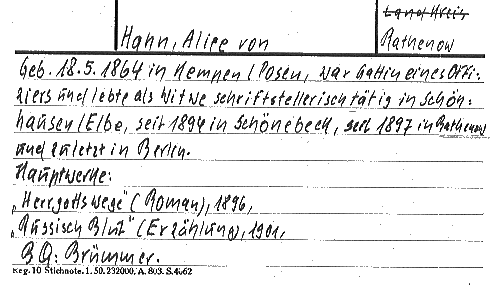 Land Kreis
Hahn, Alice von Rathenow
Geb. 18.5.1864 in Kempen/Posen, war Gattin eines Offi-
ziers und lebte als Witwe schriftstellerisch tätig in Schön-
hausen/Elbe, seit 1894 in Schönebeck, seit 1897 in Rathenow
und zuletzt in Berlin.
Hauptwerke:
„Herrgottswege" (Roman), 1896,
„Russisch Blut" (Erzählung), 1901,
BQ: Brümmer.
Reg. 10 Stichnote. 1. 50. 232000. A. 803. S. 4062